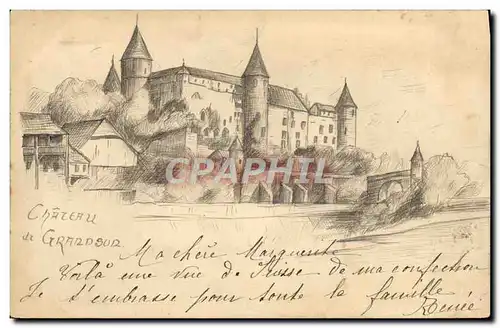 CHÂTEAU
de GRANDSON
CPHILAPHIL
Ma chère Marguerite
Voilà une vue de Suisse de ma confection
Je t'embrasse pour toute la famille
Renée